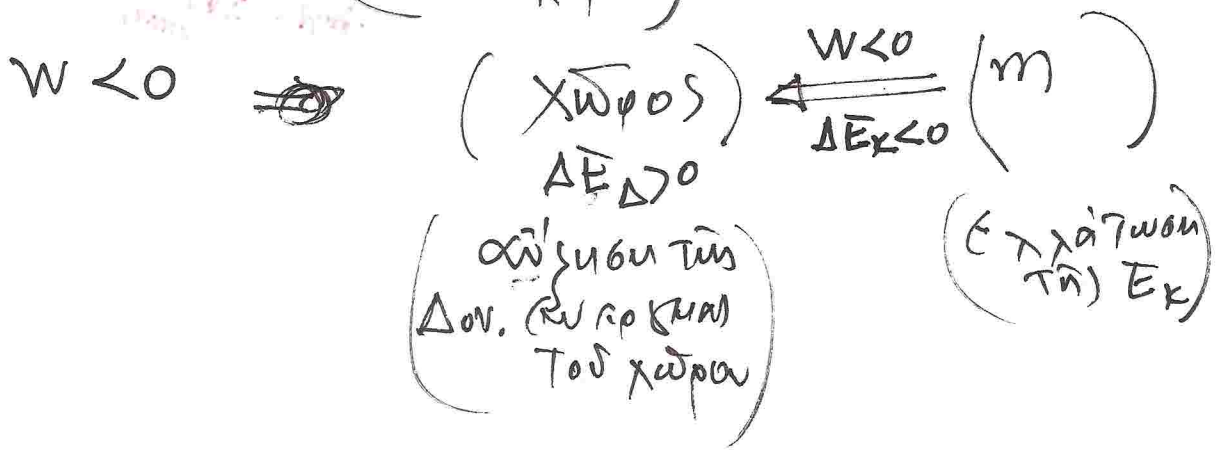 W < 0 ⇒ (χῶρος) W<0 (m)
ΔΕ_Δ > 0 ΔΕ_κ < 0
αὔξηση τῆς
Δυν. ἐνέργειας
τοῦ χώρου
(ἐλλάτωση
τῆς Ε_κ)